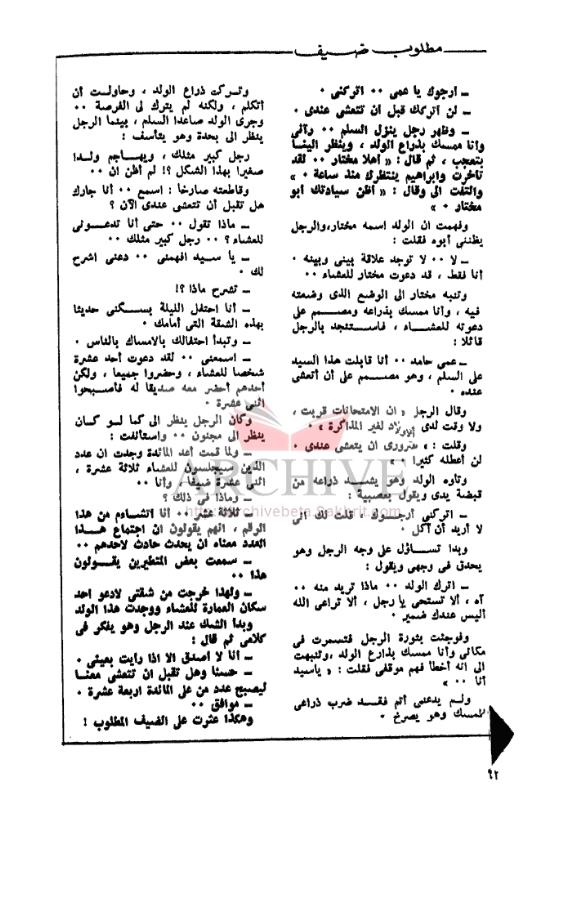 مطلوب ضيف
ـ أرجوك يا عمى ٠٠ اتركنى ٠
ـ لن اتركك قبل أن تتعشى عندى ٠
ـ وظهر رجل ينزل السلم ٠٠ ورآنى
وأنا ممسك بذراع الولد ، وينظر الينا
بتعجب ، ثم قال : « أهلا مختار ٠٠ لقد
تأخرت وابراهيم ينتظرك منذ ساعة ٠ »
والتفت الى وقال : « أظن سيادتك أبو
مختار ٠ »
وفهمت ان الولد اسمه مختار،والرجل
يظننى أبوه فقلت :
ـ لا ٠٠ لا توجد علاقة بينى وبينه ٠
أنا فقط ، قد دعوت مختار للعشاء ٠٠
وتنبه مختار الى الوضع الذى وضعته
فيه ، وأنا ممسك بذراعه ومصمم على
دعوته للعشاء ، فاستنجد بالرجل
قائلا :
ـ عمى حامد ٠٠ أنا قابلت هذا السيد
على السلم ، وهو مصمم على أن أتعشى
عنده ٠
وقال الرجل « ان الامتحانات قربت ،
ولا وقت لدى الأولاد لغير المذاكرة » ٠
وقلت : « ضرورى ان يتعشى عندى ٠
لن أعطله كثيرا ٠
وتأوه الولد وهو يشد ذراعه من
قبضة يدى ويقول بعصبية :
ـ اتركنى أرجوك ، قلت لك اننى
لا أريد أن آكل ٠
وبدا تساؤل على وجه الرجل وهو
يحدق فى وجهى ويقول :
ـ اترك الولد ٠٠ ماذا تريد منه ٠٠
آه ، ألا تستحى يا رجل ، ألا تراعى الله
أليس عندك ضمير ٠
وفوجئت بثورة الرجل فتسمرت فى
مكانى وأنا ممسك بذارع الولد ،وتنبهت
الى انه أخطأ فهم موقفى فقلت : « ياسيد
أنا ٠٠ »
ولم يدعنى أتم فقد ضرب ذراعى
الممسك وهو يصرخ ٠
وتركت ذراع الولد ، وحاولت أن
أتكلم ، ولكنه لم يترك لى الفرصة ٠٠
وجرى الولد صاعدا السلم ، بينما الرجل
ينظر الى بحدة وهو يتأسف :
رجل كبير مثلك ، ويهاجم ولدا
صغيرا بهذا الشكل ؟! لم أظن ان ٠٠
وقاطعته صارخا : اسمع ٠٠ أنا جارك
هل تقبل أن تتعشى عندى الآن ؟
ـ ماذا تقول ٠٠ حتى أنا تدعونى
للعشاء ؟ ٠٠ رجل كبير مثلك ٠٠
ـ يا سيد افهمنى ٠٠ دعنى اشرح
لك ٠
ـ تشرح ماذا ؟!
ـ أنا احتفل الليلة بسكنى حديثا
بهذه الشقة التى أمامك ٠
ـ وتبدأ احتفالك بالامساك بالناس ٠
ـ اسمعنى ٠٠ لقد دعوت أحد عشرة
شخصا للعشاء ، وحضروا جميعا ، ولكن
أحدهم أحضر معه صديقا له فأصبحوا
اثنى عشرة ٠
وكان الرجل ينظر الى كما لو كان
ينظر الى مجنون ٠٠ واستأنفت :
ـ ولما قمت أعد المائدة وجدت ان عدد
الذين سيجلسون للعشاء ثلاثة عشرة ،
اثنى عشرة ضيفا ، وأنا ٠٠
ـ وماذا فى ذلك ؟
ـ ثلاثة عشر ٠٠ أنا اتشاءم من هذا
الرقم ، انهم يقولون ان اجتماع هذا
العدد معناه ان يحدث حادث لاحدهم ٠٠
ـ سمعت بعض المتطيرين يقولون
هذا ٠٠
ـ ولهذا خرجت من شقتى لادعو احد
سكان العمارة للعشاء ووجدت هذا الولد
وبدأ الشك عند الرجل وهو يفكر فى
كلامى ثم قال :
ـ أنا لا اصدق الا اذا رأيت بعينى ٠
ـ حسنا وهل تقبل ان تتعشى معنا
ليصبح عدد من على المائدة اربعة عشرة ٠
ـ موافق ٠٠
وهكذا عثرت على الضيف المطلوب !
ARCHIVE
http://Archivebeta.Sakhrit.com
٩٢